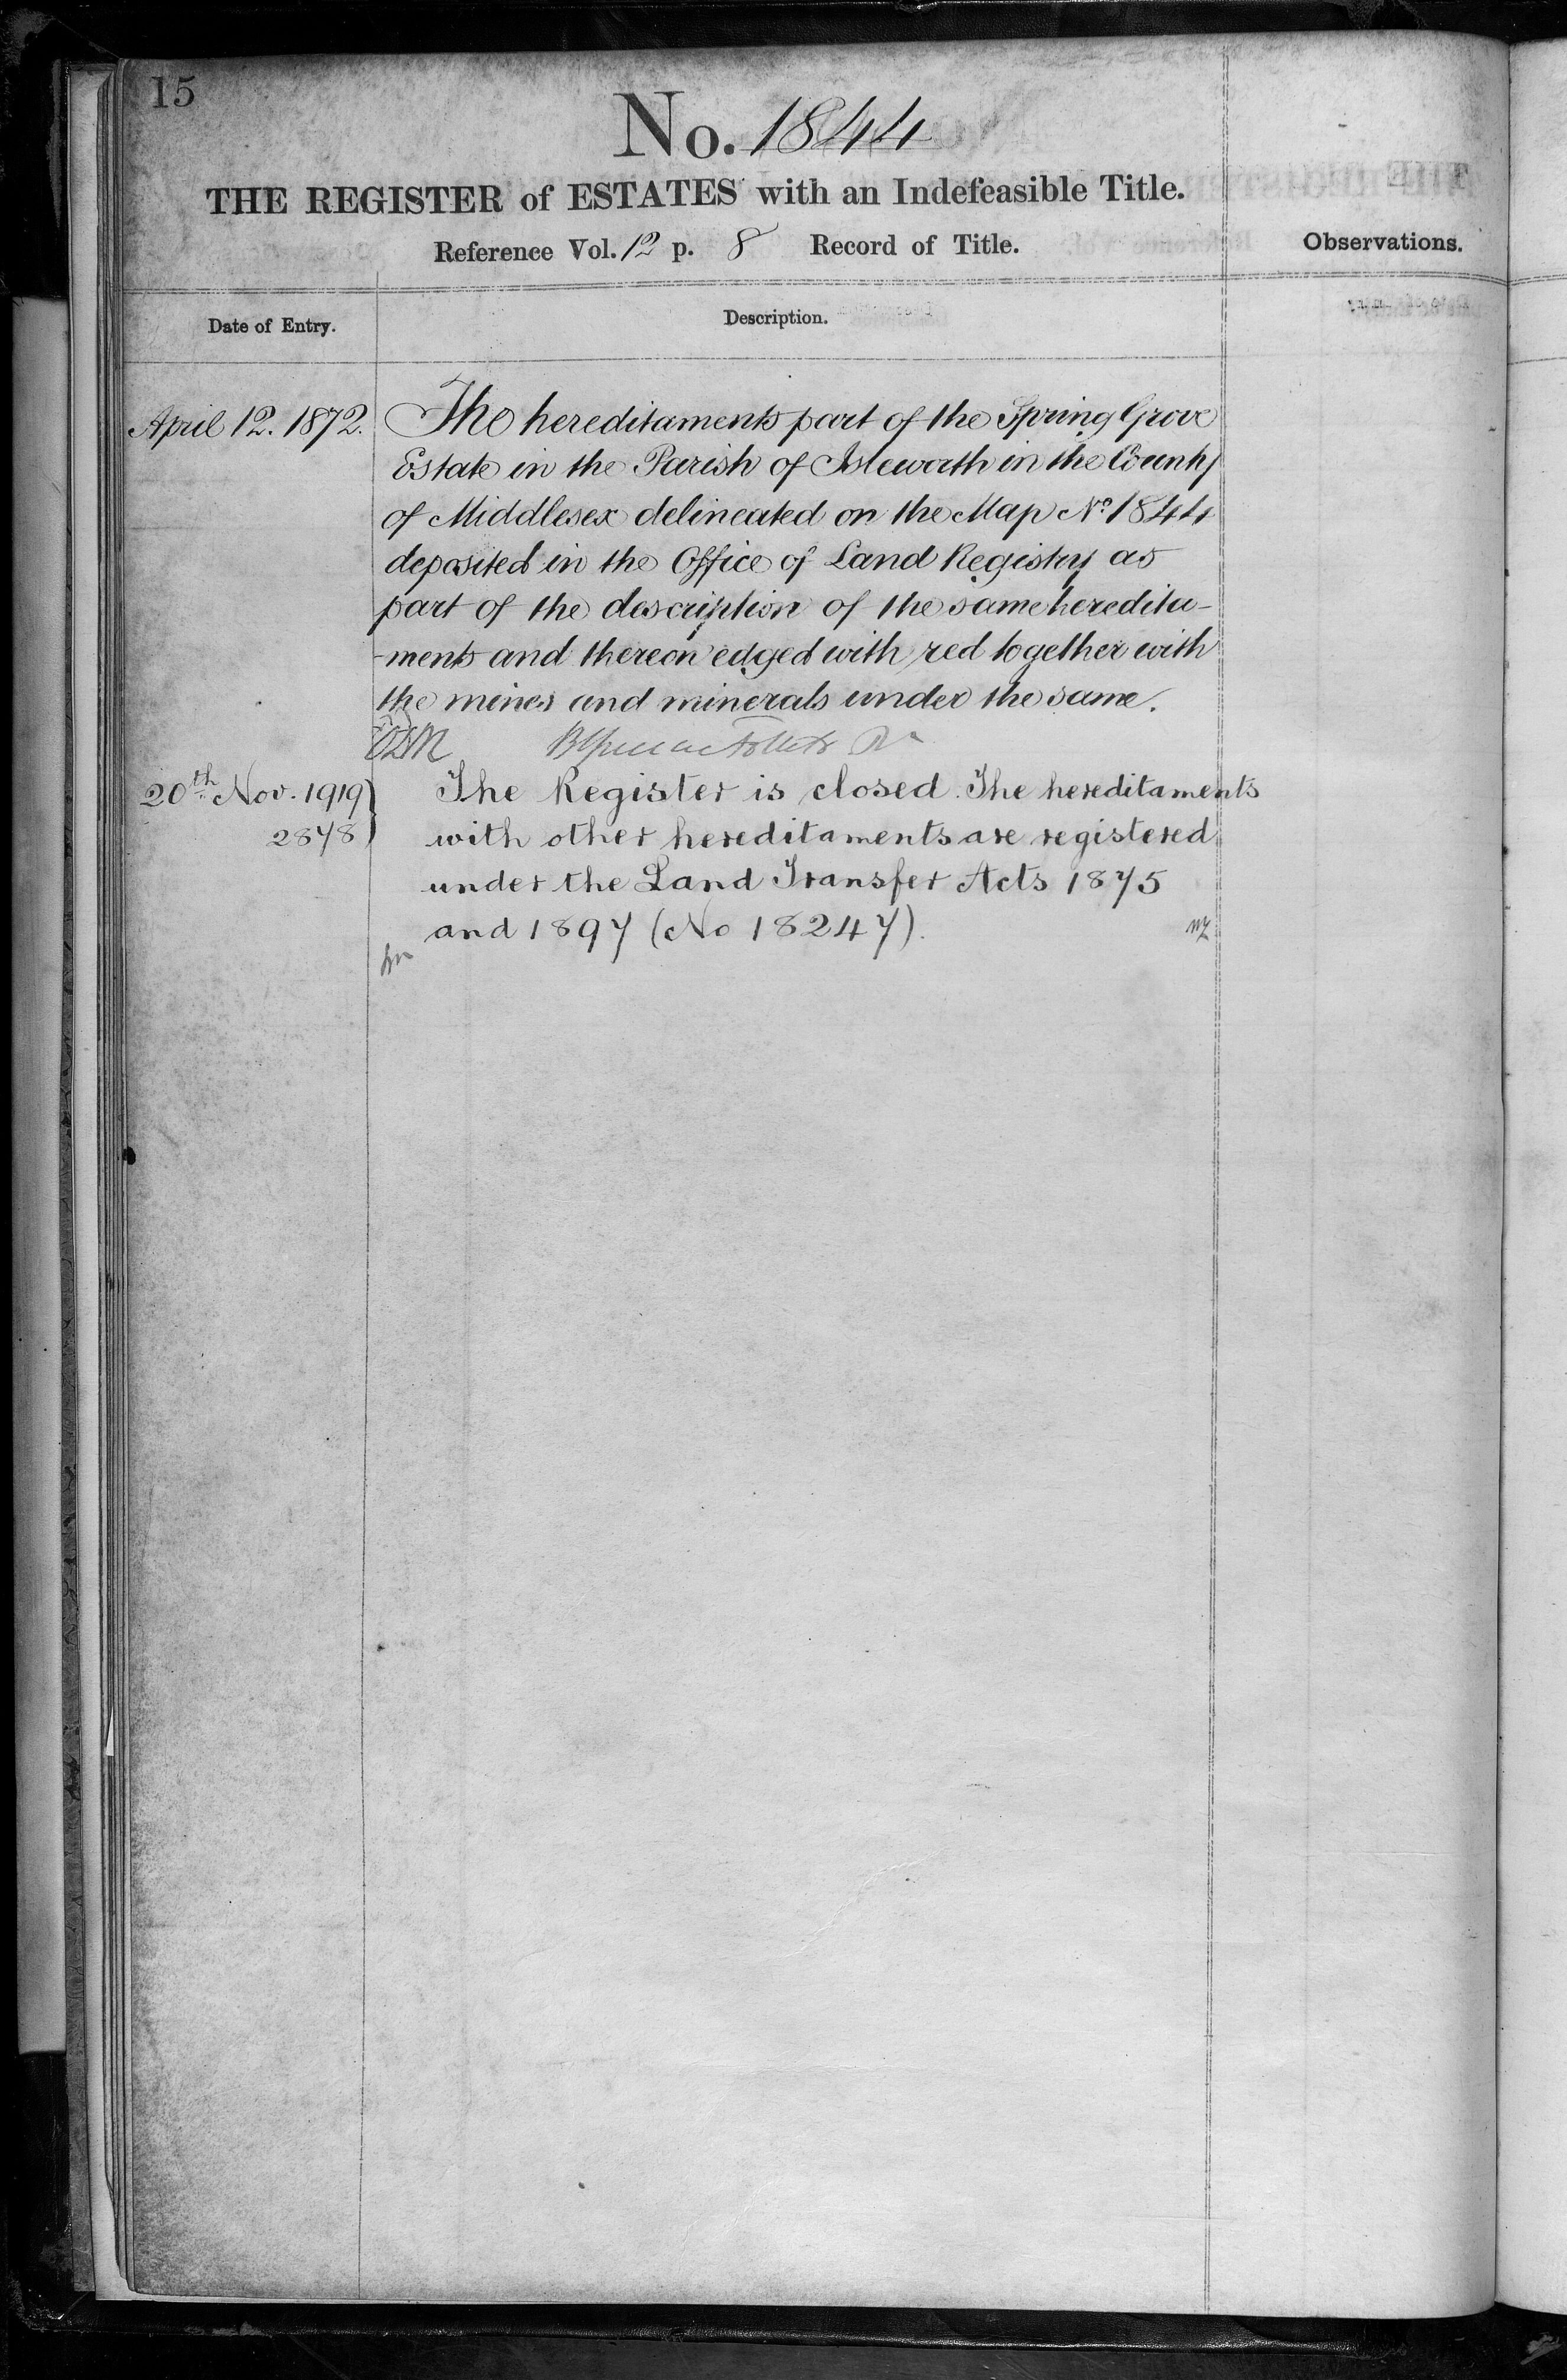 15
No. 1844
THE REGISTER of ESTATES with an Indefeasible Title.
Reference Vol. 12 p. 8 Record of Title.
Observations.
Date of Entry.
Description.
April 12. 1872.
The hereditaments part of the Spring Grove
Estate in the Parish of Isleworth in the County
of Middlesex delineated on the Map No. 1844
deposited in the Office of Land Registry as
part of the description of the same heredita-
-ments and thereon edged with red together with
the mines and minerals under the same.
20th Nov. 1919
2878
The Register is closed. The hereditaments
with other hereditaments are registered
under the Land Transfer Acts 1875
and 1897 (No 18247).